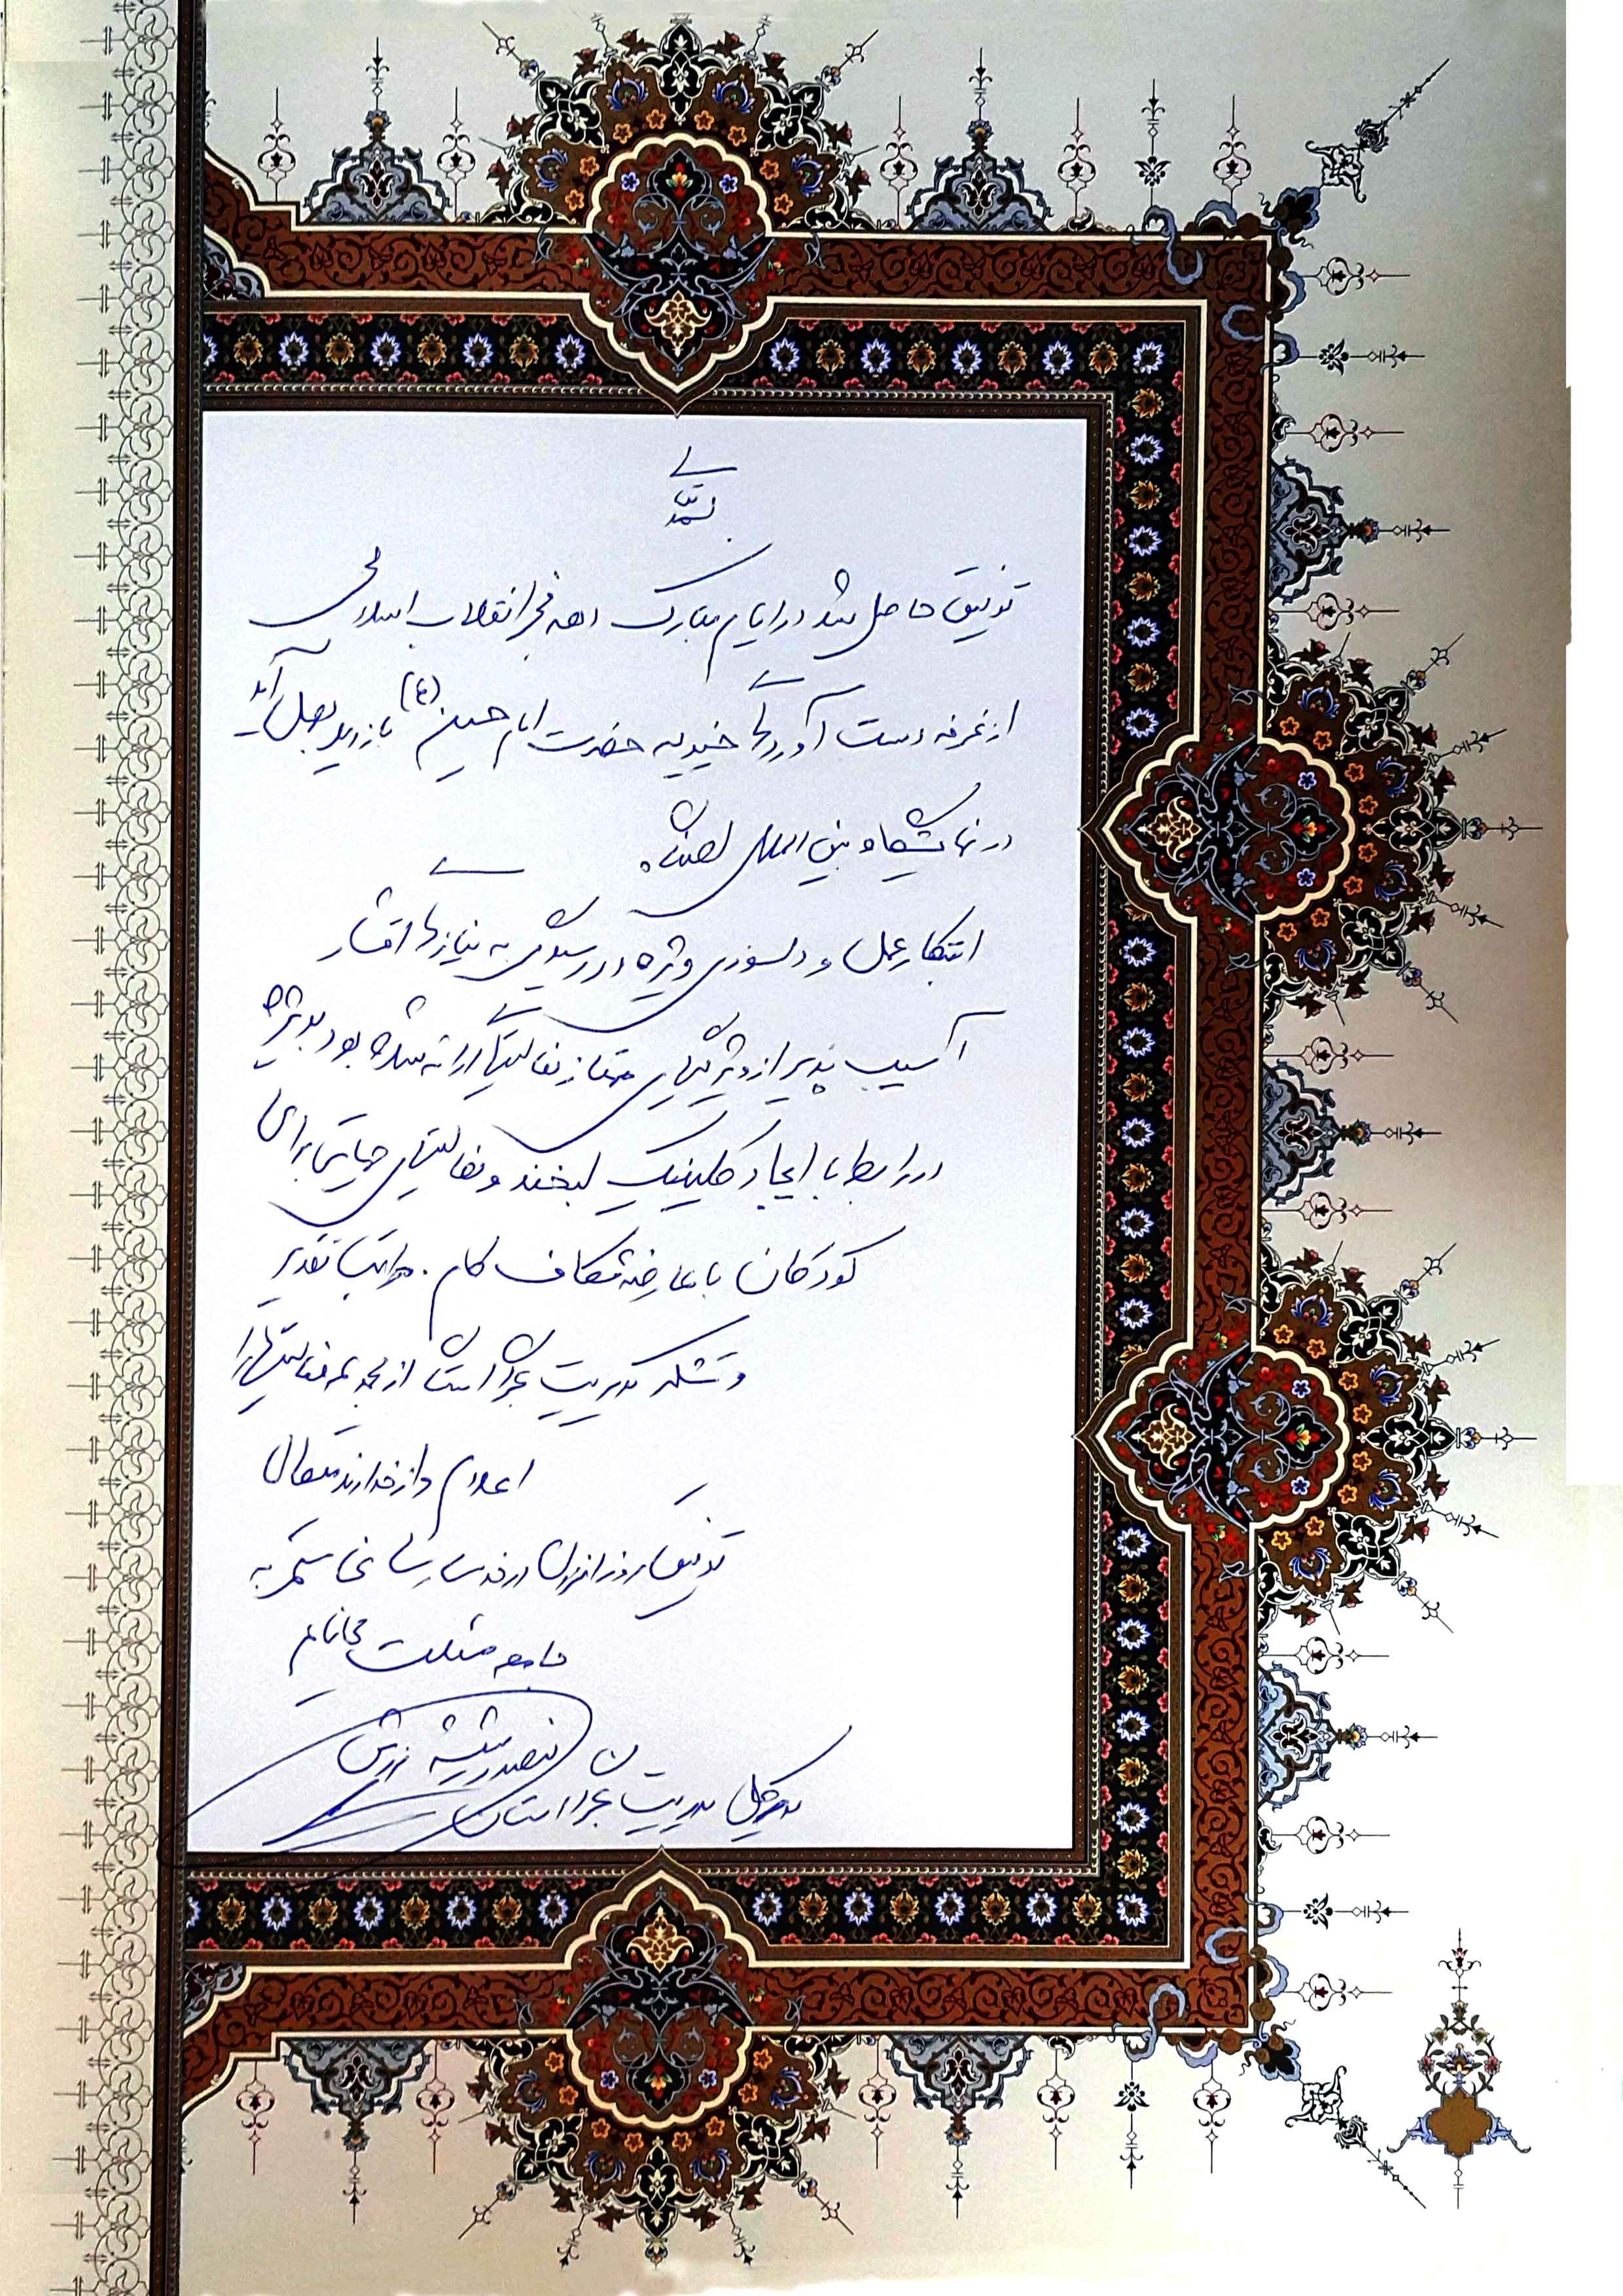 بسمه تعالی
توفیق حاصل شد در ایام مبارک دهه فجر انقلاب اسلامی
از غرفه دست آوردهای خیریه حضرت امام حسین (ع) بازدید بعمل آید
در نمایشگاه بین المللی اصفهان
ابتکار عمل و دلسوزی ویژه در رسیدگی به نیازهای اقشار
آسیب پذیر از ویژگیهای ممتاز فعالیتهای ارائه شده بود بویژه
در رابطه با ایجاد کلینیک لبخند و فعالیتهای حمایتی برای
کودکان با عارضه شکاف کام. مراتب تقدیر
و تشکر مدیریت بحران استان از مجموعه فعالیتها را
اعلام و از خداوند متعال
توفیق روز افزون در خدمت رسانی خالصانه به
جامعه مسئلت می نمایم
منصور شیشه فروش
مدیرکل مدیریت بحران استان